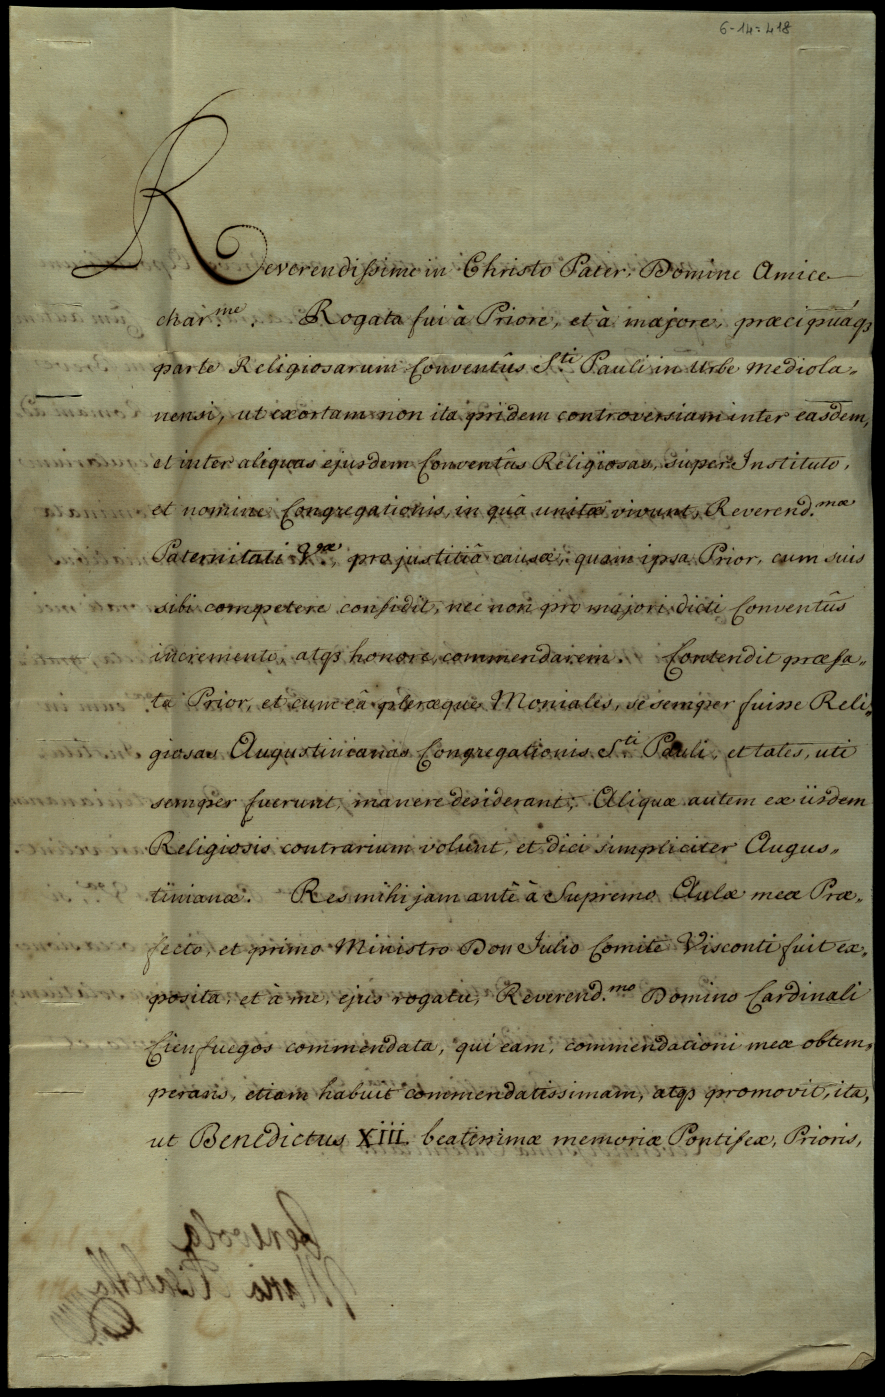 6-14=418
Reverendissime in Christo Pater, Domine Amice
char.me. Rogata fui à Priore, et à majore, præcipuáq3
parte Religiosarum Conventûs S.ti Pauli in Urbe Mediola„
nensi, ut exortam non ita pridem controversiam inter easdem,
et inter aliquas ejusdem Conventûs Religiosas, super Instituto,
et nomine Congregationis, in quâ unitæ vivunt, Reverend.mæ
Paternitati V.ræ, pro justitiâ causæ, quam ipsa Prior, cum suis
sibi competere confidit, nec non pro majori dicti Conventûs
incremento, atq3 honore, commendarem. Contendit præfa„
ta Prior, et cum eâ pleræque Moniales, se semper fuisse Reli„
giosas Augustinianas Congregationis S.ti Pauli, et tales, uti
semper fuerunt, manere desiderant; Aliquæ autem ex iisdem
Religiosis contrarium volunt, et dici simpliciter Augus„
tinianæ. Res mihi jam antè à Supremo Aulæ meæ Præ„
fecto, et primo Ministro Don Julio Comite Visconti fuit ex„
posita, et à me, ejus rogatu, Reverend.mo Domino Cardinali
Cienfuegos commendata, qui eam, commendationi meæ obtem„
perans, etiam habuit commendatissimam, atq3 promovit, ita,
ut Benedictus XIII. beatissimæ memoriæ Pontifex, Prioris,
Benevola
Maria Elisabetha